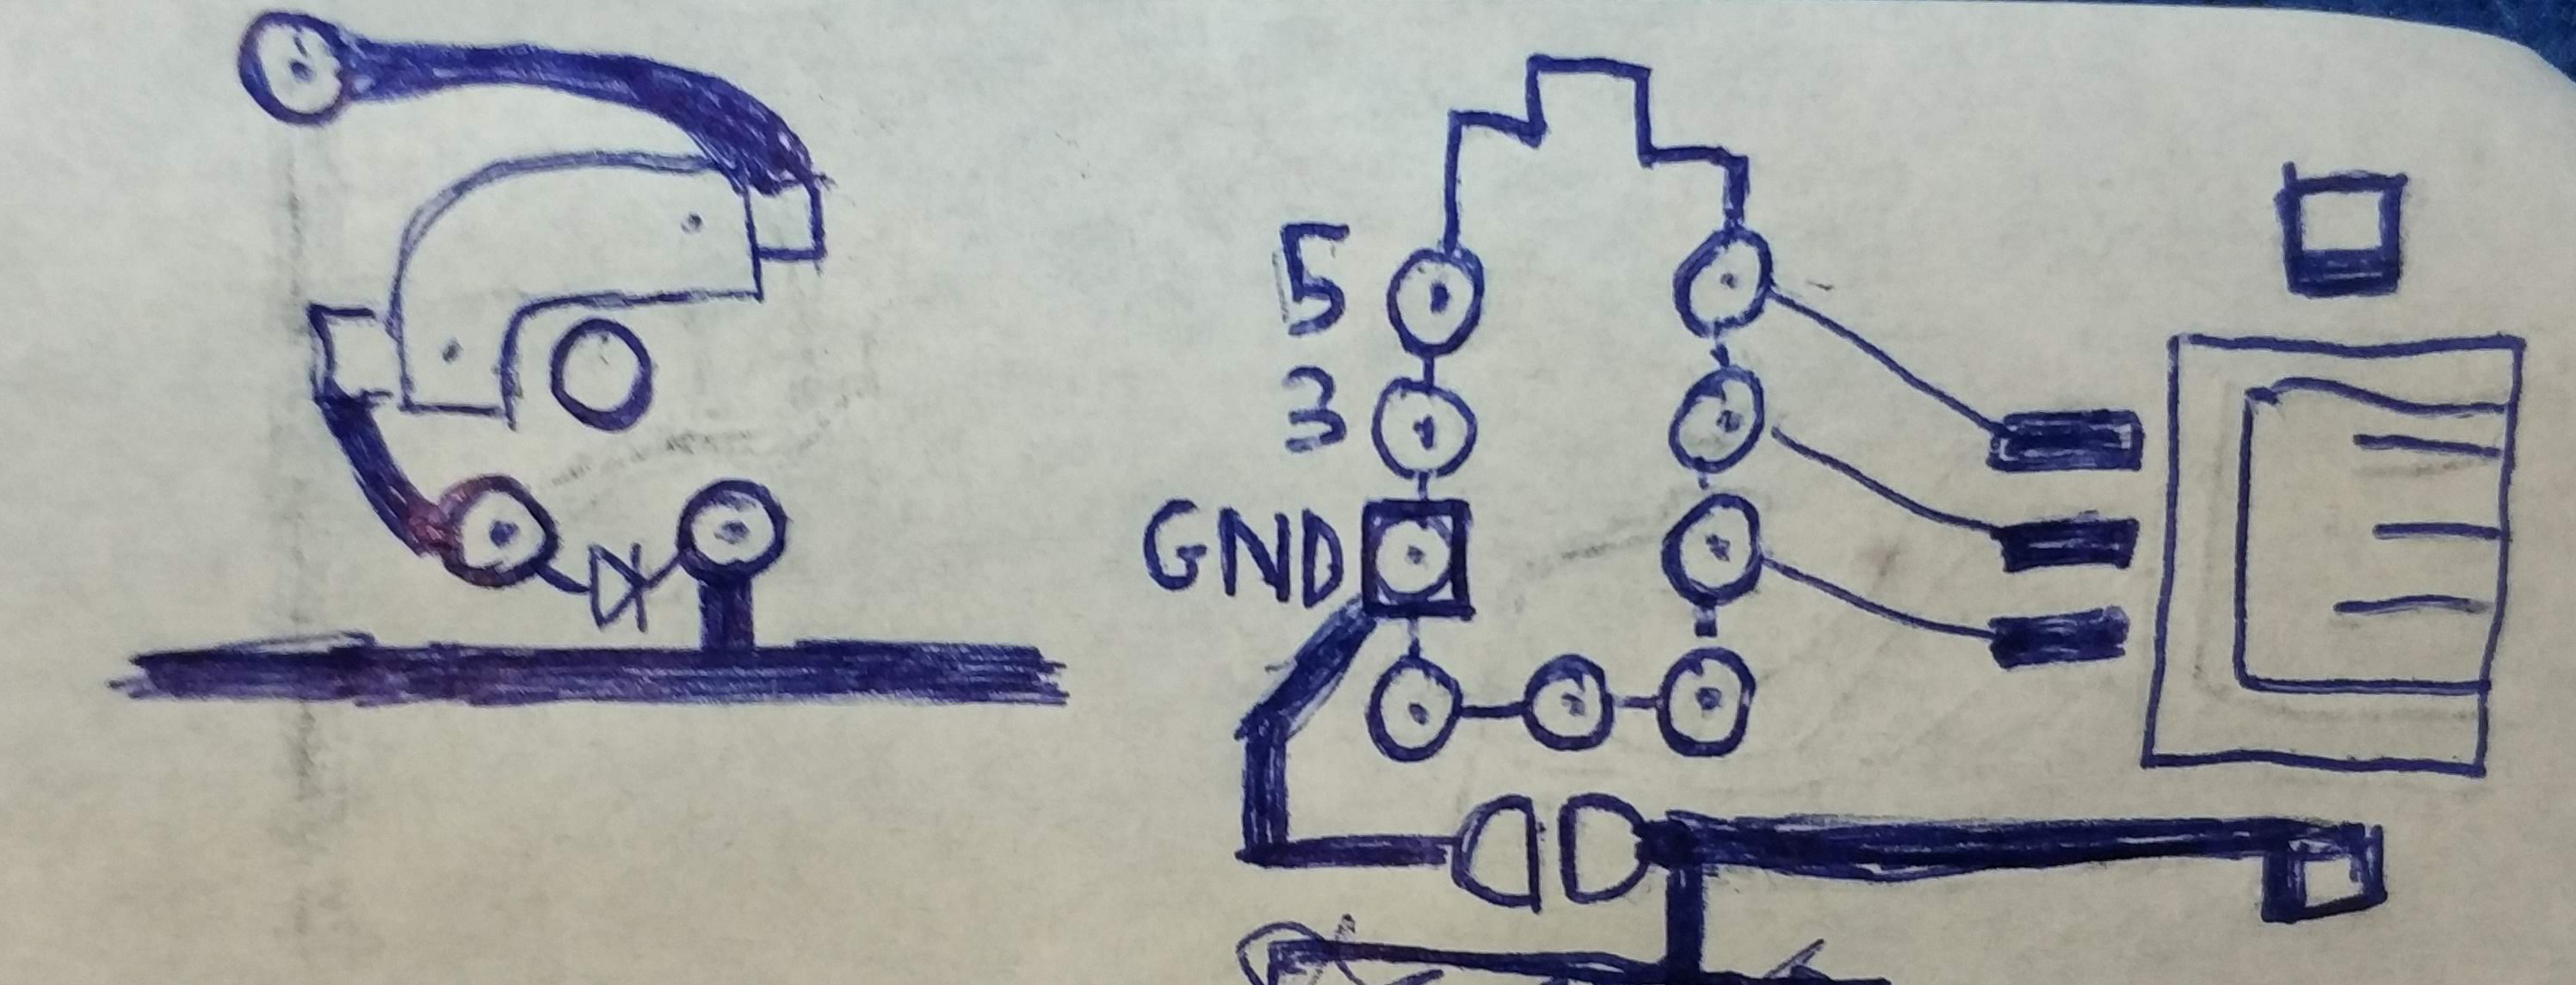 5
3
GND